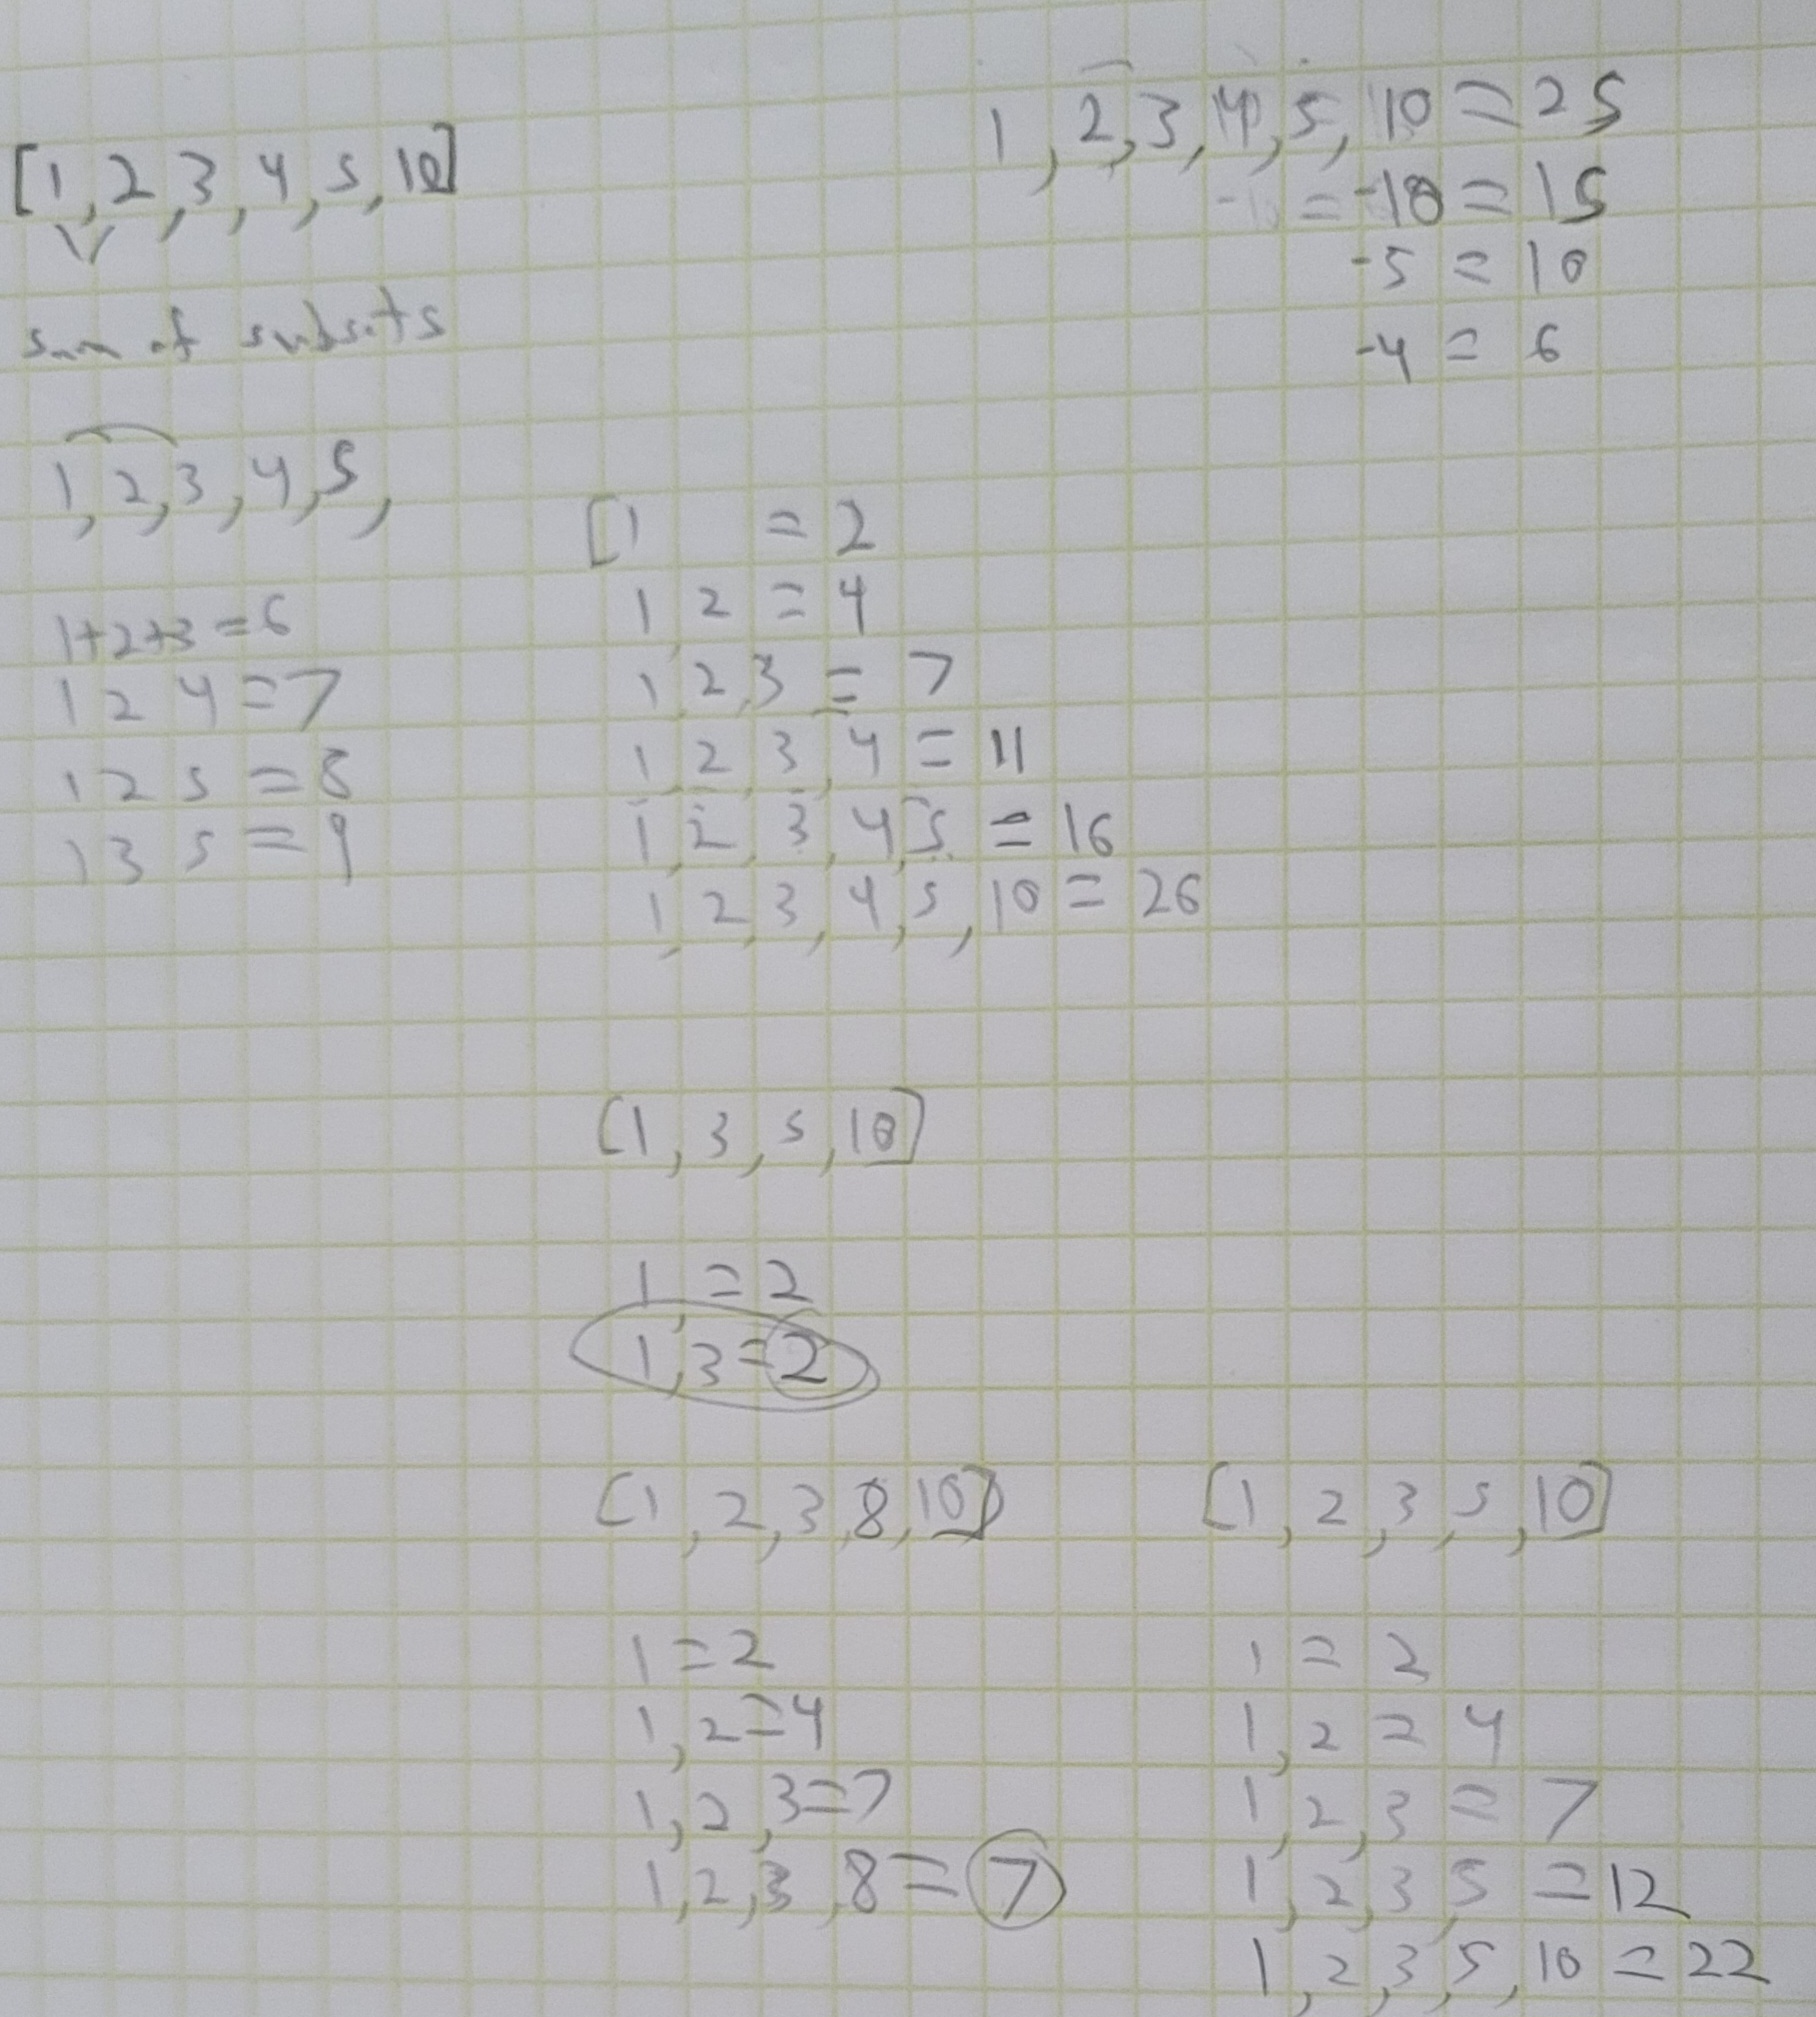 [1, 2, 3, 4, 5, 10]
sum of subsets
1, 2, 3, 4, 5, 10 = 25
= -10 = 15
-5 = 10
-4 = 6
1, 2, 3, 4, 5,
1+2+3 = 6
1 2 4 = 7
1 2 5 = 8
1 3 5 = 9
[1 = 2
1, 2 = 4
1, 2, 3 = 7
1, 2, 3, 4 = 11
1, 2, 3, 4, 5 = 16
1, 2, 3, 4, 5, 10 = 26
[1, 3, 5, 10]
1 = 2
1, 3 = 2
[1, 2, 3, 8, 10]
1 = 2
1, 2 = 4
1, 2, 3 = 7
1, 2, 3, 8 = 7
[1, 2, 3, 5, 10]
1 = 2
1, 2 = 4
1, 2, 3 = 7
1, 2, 3, 5 = 12
1, 2, 3, 5, 10 = 22